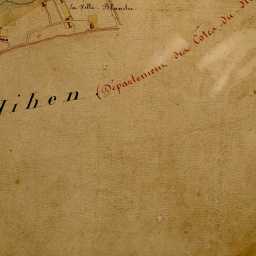 la Ville Blanche
gihen
(Département des Côtes du